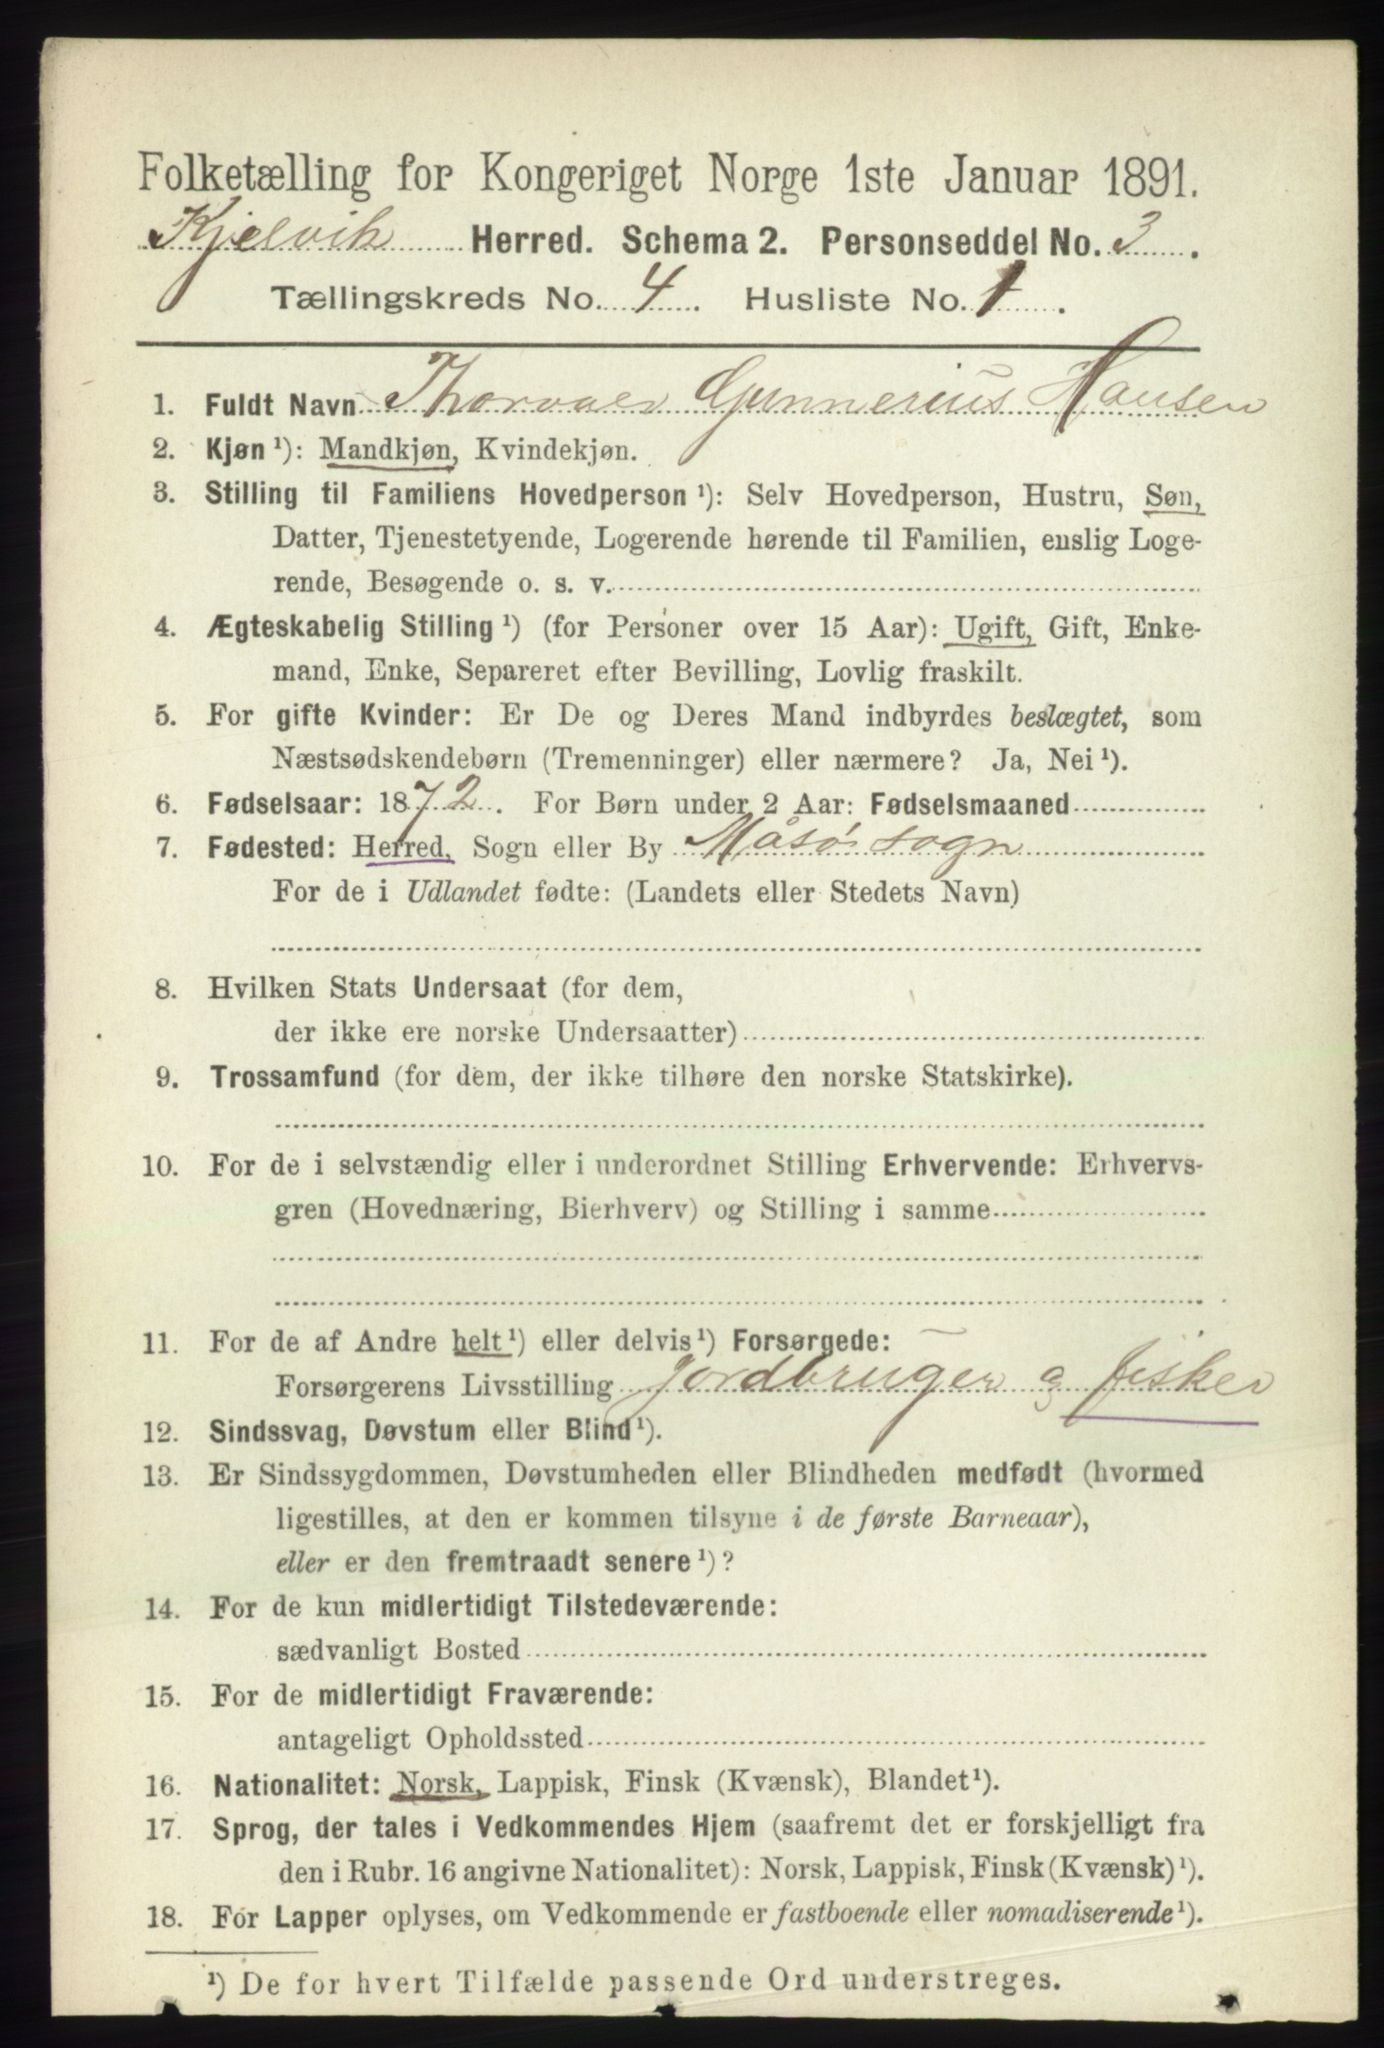 Folketælling for Kongeriget Norge 1ste Januar 1891.
Kjelvik Herred. Schema 2. Personseddel No. 3.
Tællingskreds No. 4. Husliste No. 1.
1. Fuldt Navn Thorvald Gunnerius Hansen
2. Kjøn ¹): Mandkjøn, Kvindekjøn.
3. Stilling til Familiens Hovedperson ¹): Selv Hovedperson, Hustru, Søn,
Datter, Tjenestetyende, Logerende hørende til Familien, enslig Loge-
rende, Besøgende o. s. v.
4. Ægteskabelig Stilling ¹) (for Personer over 15 Aar): Ugift, Gift, Enke-
mand, Enke, Separeret efter Bevilling, Lovlig fraskilt.
5. For gifte Kvinder: Er De og Deres Mand indbyrdes beslægtet, som
Næstsødskendebørn (Tremenninger) eller nærmere? Ja, Nei ¹).
6. Fødselsaar: 1872. For Børn under 2 Aar: Fødselsmaaned
7. Fødested: Herred, Sogn eller By Måsø sogn
For de i Udlandet fødte: (Landets eller Stedets Navn)
8. Hvilken Stats Undersaat (for dem,
der ikke ere norske Undersaatter)
9. Trossamfund (for dem, der ikke tilhøre den norske Statskirke).
10. For de i selvstændig eller i underordnet Stilling Erhvervende: Erhvervs-
gren (Hovednæring, Bierhverv) og Stilling i samme
11. For de af Andre helt ¹) eller delvis ¹) Forsørgede:
Forsørgerens Livsstilling Jordbruger og fisker
12. Sindssvag, Døvstum eller Blind ¹).
13. Er Sindssygdommen, Døvstumheden eller Blindheden medfødt (hvormed
ligestilles, at den er kommen tilsyne i de første Barneaar),
eller er den fremtraadt senere ¹)?
14. For de kun midlertidigt Tilstedeværende:
sædvanligt Bosted
15. For de midlertidigt Fraværende:
antageligt Opholdssted
16. Nationalitet: Norsk, Lappisk, Finsk (Kvænsk), Blandet ¹).
17. Sprog, der tales i Vedkommendes Hjem (saafremt det er forskjelligt fra
den i Rubr. 16 angivne Nationalitet): Norsk, Lappisk, Finsk (Kvænsk) ¹).
18. For Lapper oplyses, om Vedkommende er fastboende eller nomadiserende ¹).
¹) De for hvert Tilfælde passende Ord understreges.